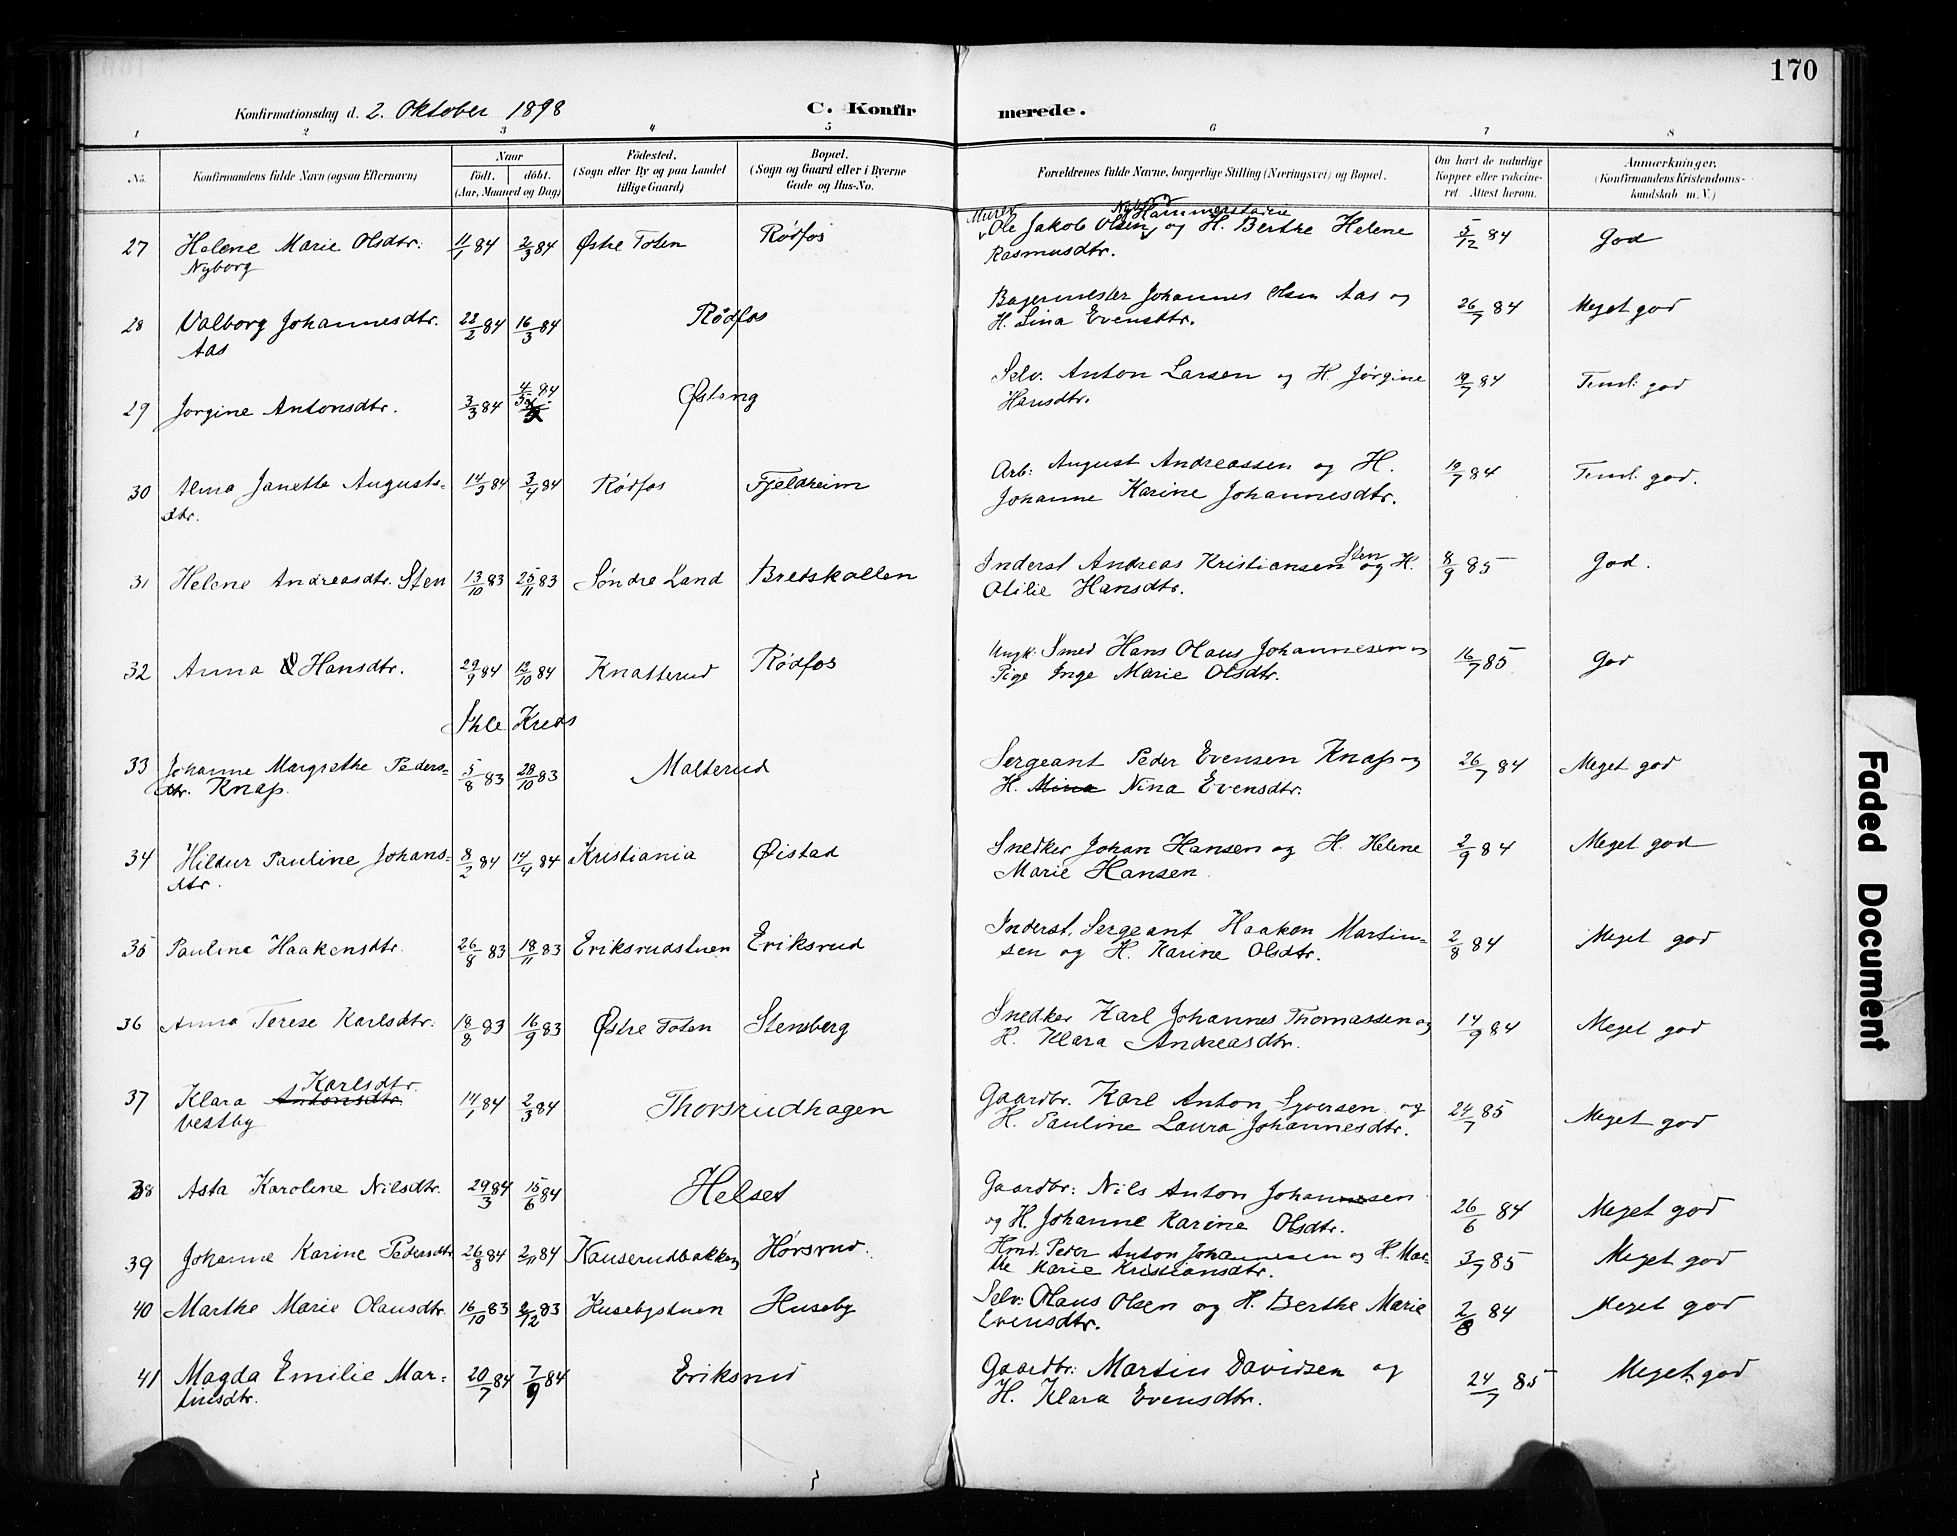 170
Konfirmationsdag d. 2. Oktober 1898 C. Konfirmerede.
1 2 3 4 5 6 7 8
No. Konfirmandens fulde Navn (ogsaa Efternavn) Naar født. døbt. (Aar, Maaned og Dag) Fødested. (Sogn eller By og paa Landet tillige Gaard) Bopæl. (Sogn og Gaard eller i Byerne Gade og Hus-No. Forældrenes fulde Navne, borgerlige Stilling (Næringsvei) og Bopæl. Om havt de naturlige Kopper eller vakcineret Attest herom. Anmærkninger. (Konfirmandens Kristendomskundskab m. V.)
27 Helene Marie Olsdtr: 11/1 84 2/3 84 Østre Toten Rødfos Murer Ole Jakob Olsen Nyborg Hammerstaden og H. Berthe Helene 5/12 84 God
Nyborg Rasmusdtr.
28 Valborg Johannesdtr. 22/2 84 16/3 84 Rødfos Bagermester Johannes Olsen Aas og 26/7 84 Meget god
Aas H. Lina Evensdtr.
29 Jørgine Antonsdtr. 3/3 84 4/5 84 Østeng Selv. Anton Larsen og H. Jørgine 19/7 84 Teml: god
Hansdtr.
30 Alma Janette Augusts= 14/3 84 3/4 84 Rødfos Fjeldheim Arb: August Andreassen og H. 19/7 84 Teml. god.
dtr. Johanne Karine Johannesdtr.
31 Helene Andreasdtr. Sten 13/10 83 25/11 83 Søndre Land Bretskallen Inderst Andreas Kristiansen Sten og H. 8/9 85 God.
Otilie Hansdtr.
32 Anna Hansdtr. 29/9 84 12/10 84 Knatterud Rødfos Ungk: Smed Hans Olaus Johannesen og 16/7 85 God
Pige Inge Marie Olsdtr.
Ihle Kreds
33 Johanne Margrethe Peders= 5/8 83 28/10 83 Malterud Sergeant Peder Evensen Knap og 26/7 84 Meget god
dtr. Knap. H. Mina Nina Evensdtr.
34 Hildur Pauline Johans= 8/2 84 14/4 84 Kristiania Øistad Snedker Johan Hansen og H. Helene 2/9 84 Meget god
dtr. Marie Hansen
35 Pauline Haakensdtr. 26/8 83 18/11 83 Eriksrudstuen Eriksrud Inderst, Sergeant Haaken Martin= 2/8 84 Meget god
sen og H. Karine Olsdtr.
36 Anna Terese Karlsdtr: 18/8 83 16/9 83 Østre Toten Stensberg Snedker Karl Johannes Thomassen og 14/9 84 Meget god
H. Klara Andreasdtr.
37 Klara Antonsdtr Karlsdtr. 14/1 84 2/3 84 Thorsrudhagen Gaardbr. Karl Anton Syversen og 24/7 85 Meget god
Vestby H. Pauline Laura Johannesdtr.
38 Asta Karoline Nilsdtr. 29/3 84 15/6 84 Helset Gaardbr: Nils Anton Johannesen 26/6 84 Meget god
og H. Johanne Karine Olsdtr.
39 Johanne Karine Pedersdtr 26/8 84 2/11 84 Kauserudbakken Hørsrud. Hmd. Peder Anton Johannesen og H. Mar= 3/7 85 Meget god
the Marie Kristiansdtr.
40 Marthe Marie Olausdtr. 16/10 83 2/12 83 Husebystuen Huseby Selv: Olaus Olsen og H. Berthe Marie 2/8 84 Meget god
Evensdtr.
41 Magda Emilie Mar= 20/7 84 7/9 84 Eriksrud Gaardbr: Martin Davidsen og 24/7 85 Meget god
tinsdtr. H. Klara Evensdtr.
Faded Document